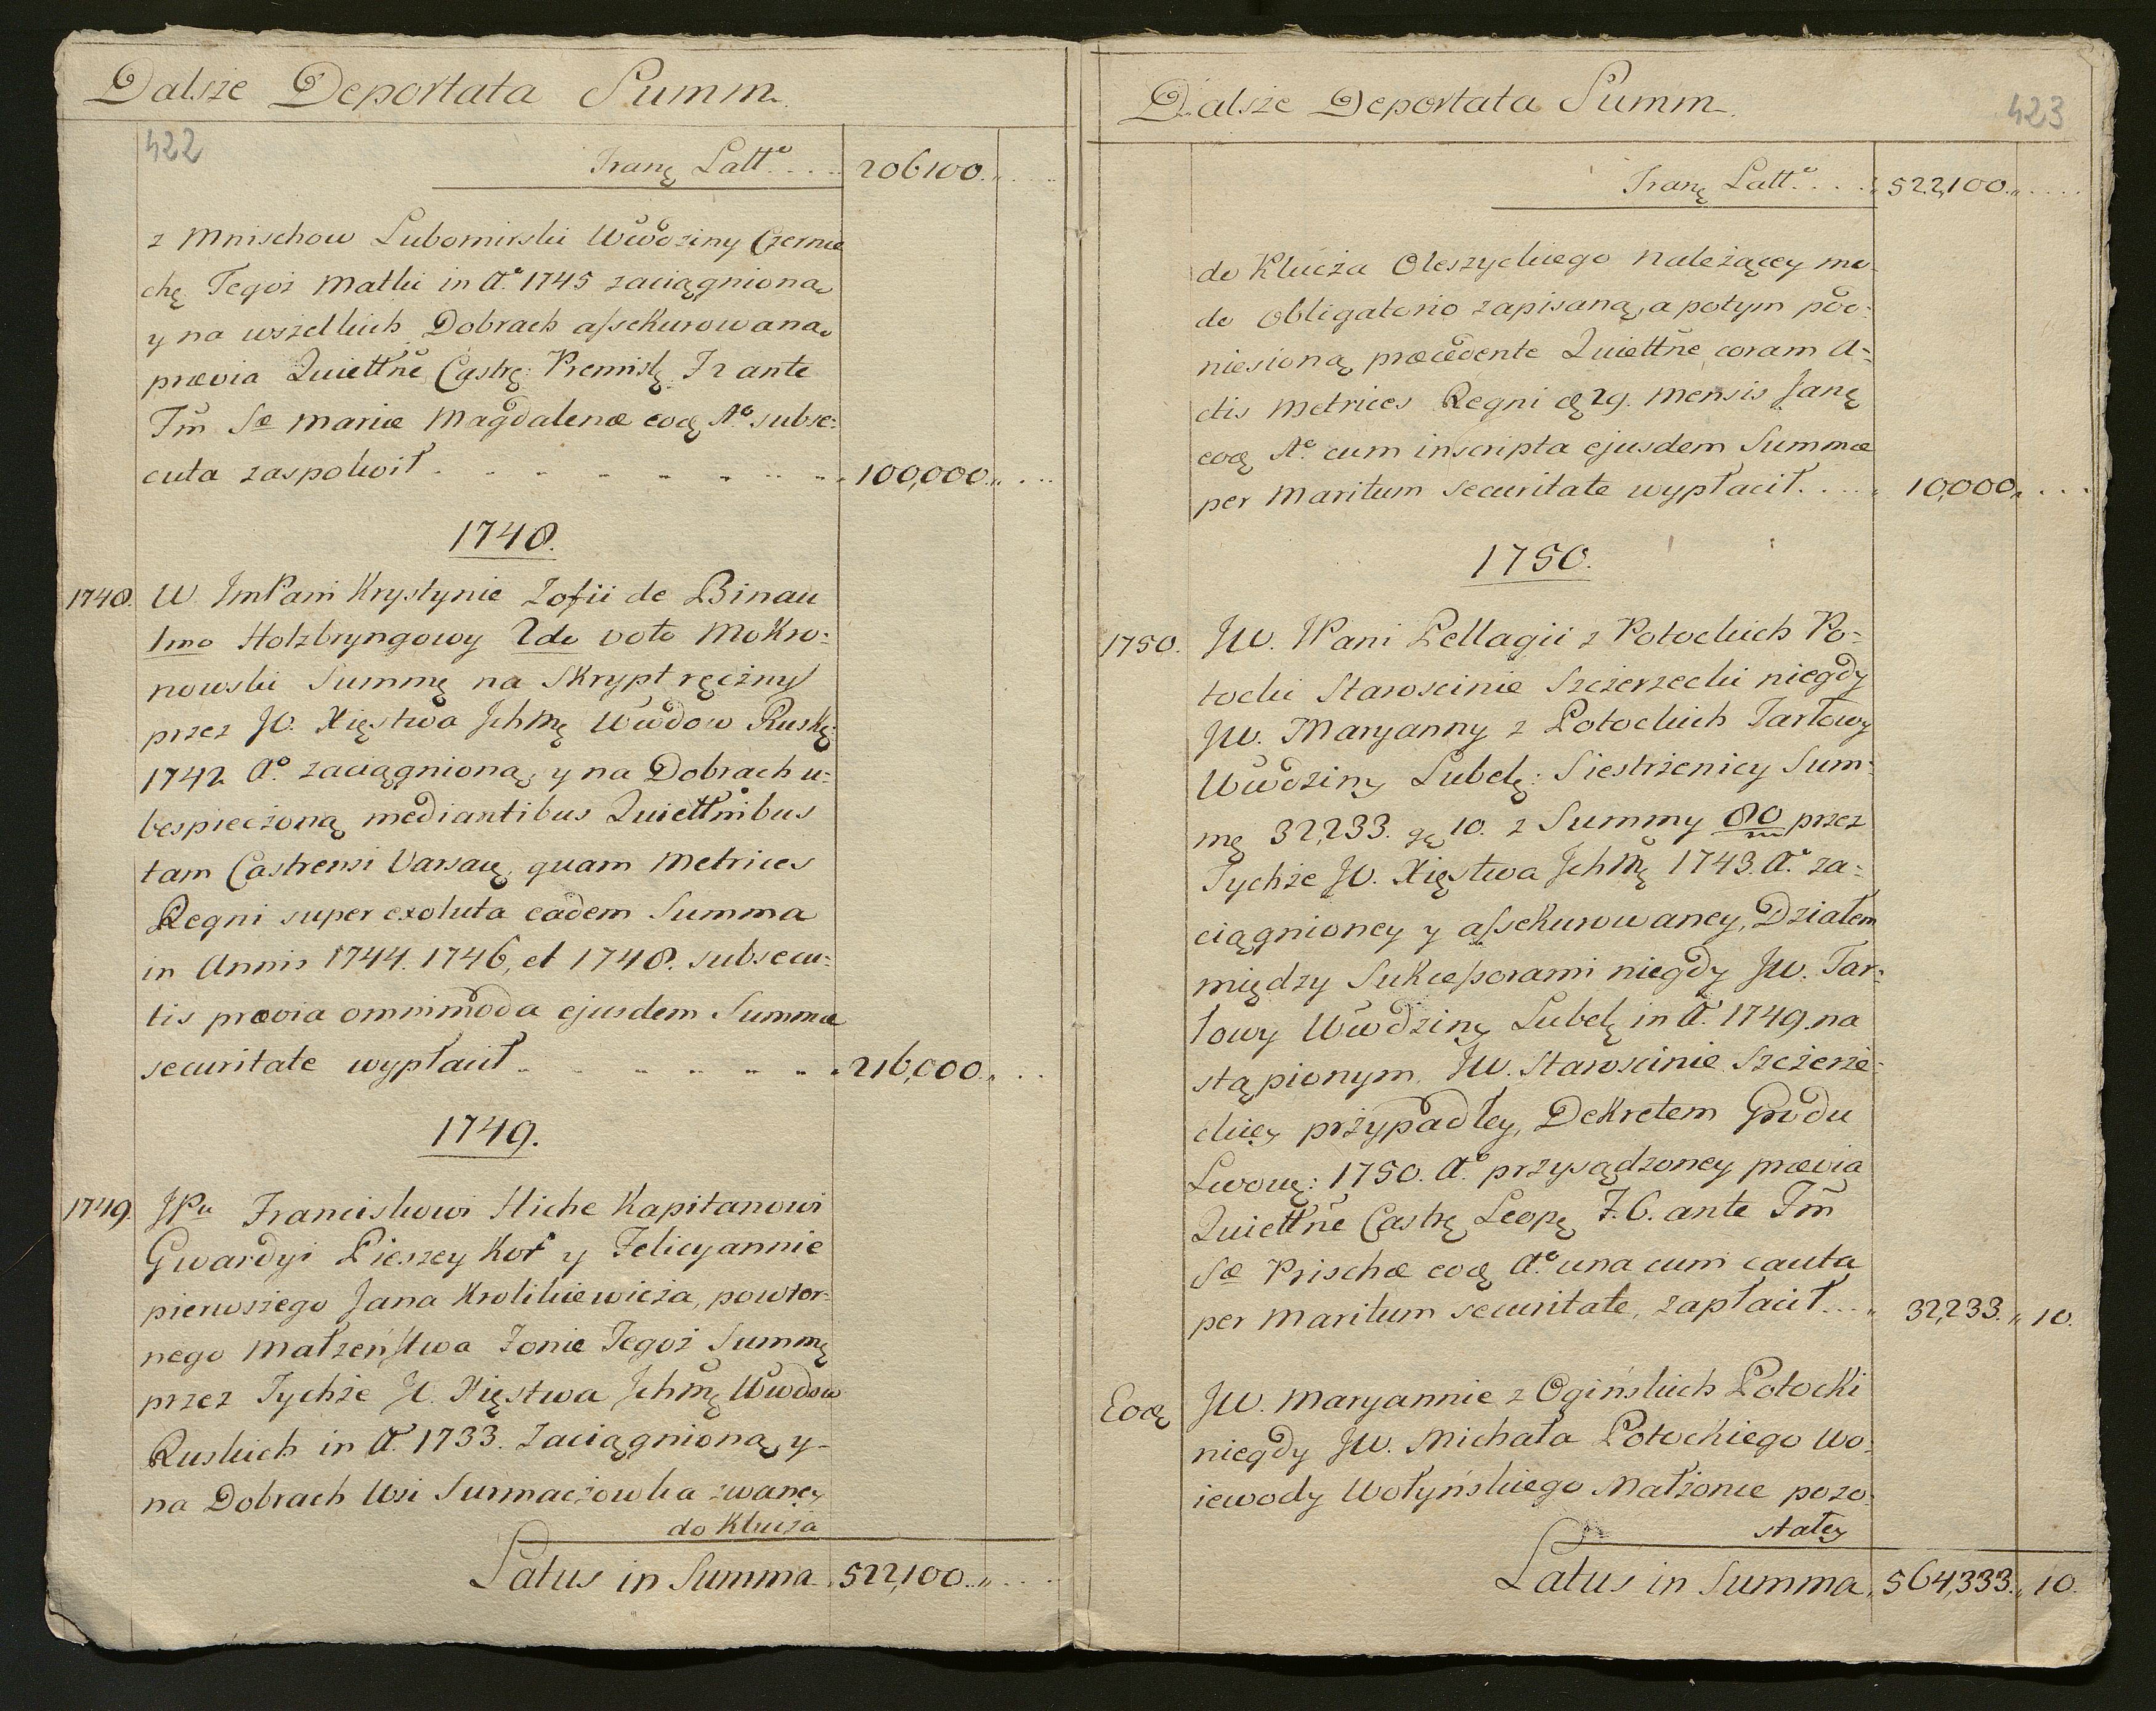 Dalsze Deportata Summ.
422
Tranę Latt.º .... 206100. „ ...
z Mnischow Lubomirski Wwdziny Czernie
chę Tegoż Matki in Aº. 1745 zaciągnioną
y na wszelkich Dobrach assekurowaną
prævia Quiettñe Castrę: Premislę F 2 ante
Fm̃ Sæ Mariæ Magdalenæ eoq̨ Aº subse:
cuta zaspokoił . . . . . . . 100,000. „ ...
1748.
1748. W. ImPani Krystynie Zofii de Binau
1mo Holzbryngowy 2do voto Mokro:
nowski Summę na Skrypt ręczny
przez JO. Xięstwa Jchmę Wwdow Ruskę:
1742 Aº. zaciągnioną, y na Dobrach u:
bespieczoną mediantibus Quiettñibus
tam Castrensi Varsavę, quam Metrices
Regni super exoluta eadem Summa
in Annis 1744. 1746, et 1748. subsecu:
tis prævia omnimoda ejusdem Summæ
securitate wypłacił . . . . . . 216,000. „ ..
1749.
1749. JPu Franciskowi Hiche Kapitanowi
Gwardyi Pieszey Kor y Felicyannie
pierwszego Jana Krolikiewicza, powtor:
nego Małzeństwa Zonie Tegoż Summę
przez Tychże JO. Xięstwa Jchm̃ę Wwdow
Ruskich in Aº. 1733. Zaciągnioną, y
na Dobrach Wsi Surmaczowka zwaney
do Klucza
Latus in Summa . 522,100. „ ...
Dalsze Deportata Summ.
423
Tranę Latt.º .... 522,100. „ ....
do Klucza Oleszyckiego należącey mo:
do obligatorio zapisaną, a potym pod:
niesioną præcedente Quiettñe coram A:
ctis Metrices Regni q̨ 29. Mensis Janę
eoq̨ Aº. cum inscripta ejusdem Summæ
per Maritum securitate wypłacił. ... 10,000. „ ...
1750.
1750. JW. JPani Pellagii z Potockich Po:
tocki Staroscinie Szczerzecki niegdy
JW. Maryanny z Potockich Tarłowy
Wwdziny Lubelę: Siestrzenicy Sum:
mę 32,233. gę 10. z Summy 80/m przez
Tychże JO. Xięstwa Jchm̃ę 1743. Aº. za:
ciągnioney y assekurowaney, Działem
między Sukcessorami niegdy JW. Tar:
łowy Wwdziny Lubelę in Aº. 1749. na
stąpionym, JW. Staroscinie Szczerze:
ckiey przypadłey, Dekretem Grodu
Lwowę: 1750. Aº. przysądzoney prævia
Quiettñe Castrę Leopę F. 6. ante Fm̃
Sæ Priscæ eoq̨ Aº. una cum cauta
per Maritum securitate, zapłacił ... 32,233. „ 10.
Eoq̨ JW. Maryannie z Ogińskich Potocki
niegdy JW. Michała Potockiego Wo:
iewody Wołyńskiego Małżonce pozo:
stałey
Latus in Summa „ 564,333. „ 10.